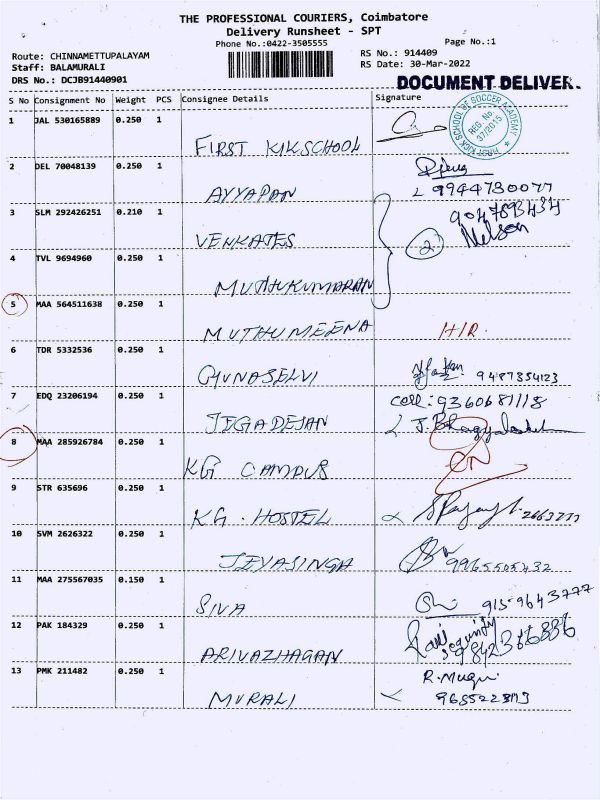 THE PROFESSIONAL COURIERS, Coimbatore
Delivery Runsheet - SPT
Phone No.:0422-3505555
Page No.:1
Route: CHINNAMETTUPALAYAM
RS No.: 914409
Staff: BALAMURALI
RS Date: 30-Mar-2022
DRS No.: DCJB91440901
DOCUMENT DELIVER.
S No Consignment No Weight PCS Consignee Details Signature
1 JAL 530165889 0.250 1
FIRST KICK SCHOOL OF SOCCER ACADEMY
REG. No
37/2015
FIRST KIKSCHOOL
2 DEL 70048139 0.250 1
AYYAPAN 9944730077
3 SLM 292426251 0.210 1
9047893434
VENKATES 2 Nelson
4 TVL 9694960 0.250 1
MUTHUKUMARAN
5 MAA 564511638 0.250 1
MUTHUMEENA H/R.
6 TDR 5332536 0.250 1
GUNASELVI 9487354123
7 EDQ 23206194 0.250 1
cell: 9360681118
JEGADEJAN J. Bhagyalakshmi
8 MAA 285926784 0.250 1
KG CAMPUS ON
9 STR 635696 0.250 1
KG. HOSTEL 2663777
10 SVM 2626322 0.250 1
JEYASINGH 9965505432
11 MAA 275567035 0.150 1
SIVA 915-9643777
12 PAK 184329 0.250 1
Ravi
security
ARIVAZHAGAN 9842366336
13 PMK 211482 0.250 1
R. Mugu
MURALI